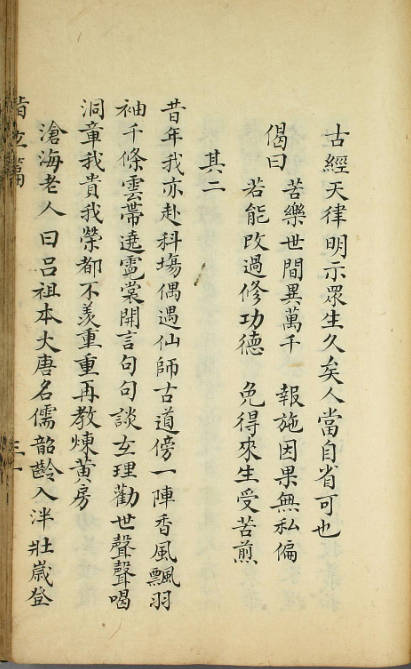 古經天律明示眾生久矣人當自省可也
偈曰
苦樂世間異萬千　報施因果無私偏
若能改過修功德　免得來生受苦煎
其二
昔年我亦赴科場偶遇仙師古道傍一陣香風飄羽
袖千條雲帶遶霓裳開言句句談玄理勸世聲聲喝
洞章我貴我榮都不羨重重再教煉黃房
滄海老人曰呂祖本大唐名儒韶齡入泮壯歲登